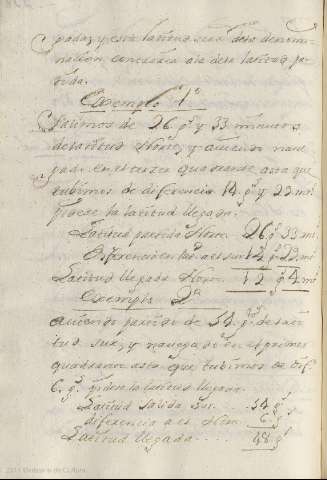 padas, y esta latitud sera dela denomi-
nacion contraria ala dela latitud pa-
tida.
Exemplo 1º
Salimos de 26 gs y 33 minutos
de latitud Norte, y auiendo naue-
gado en el tercer quadrante asta que
tubimos de diferencia 14 gs y 29 ms
pidese la latitud llegada.
Latitud partida Norte 26 g 33 ms
Diferencia en lat. al sur 14 g 29 ms
Latitud llegada Norte 12 g 4 ms
Exemplo 2º
auiendo partido de 54 gs de lati-
tud sur, y nauegado en el primer
quadrante asta que tubimos de dif.
6 gs piden la latitud llegada.
Latitud salida sur 54 gs
diferencia al Norte 6 gs
Latitud llegada .... 48 gs
2011 Ministerio de Cultura